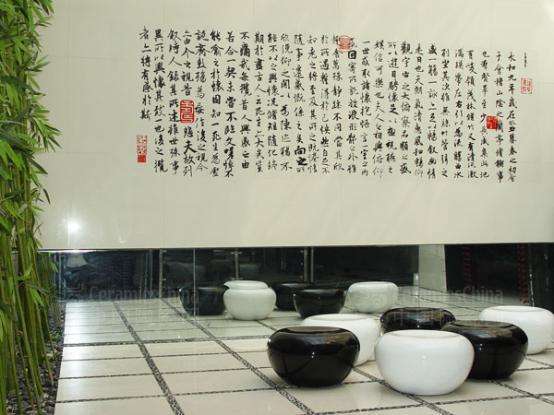 永和九年歲在癸丑暮春之初會
于會稽山陰之蘭亭脩禊事
也羣賢畢至少長咸集此地
有峻領茂林脩竹又有清流激
湍暎帶左右引以為流觴曲水
列坐其次雖無絲竹管弦之
盛一觴一詠亦足以暢敘幽情
是日也天朗氣清惠風和暢仰
觀宇宙之大俯察品類之盛
所以遊目騁懷足以極視聽之
娛信可樂也夫人之相與俯仰
一世或取諸懷抱悟言一室之內
或因寄所託放浪形骸之外雖
趣舍萬殊靜躁不同當其欣
於所遇蹔得於己快然自足不
知老之將至及其所之既惓情
隨事遷感慨係之矣向之所
欣俛仰之閒以為陳迹猶不
能不以之興懷況脩短隨化終
期於盡古人云死生亦大矣豈
不痛哉每攬昔人興感之由
若合一契未嘗不臨文嗟悼不
能喻之於懷固知一死生為虛
誕齊彭殤為妄作後之視今
亦由今之視昔悲夫故列
敘時人錄其所述雖世殊事
異所以興懷其致一也後之攬
者亦將有感於斯